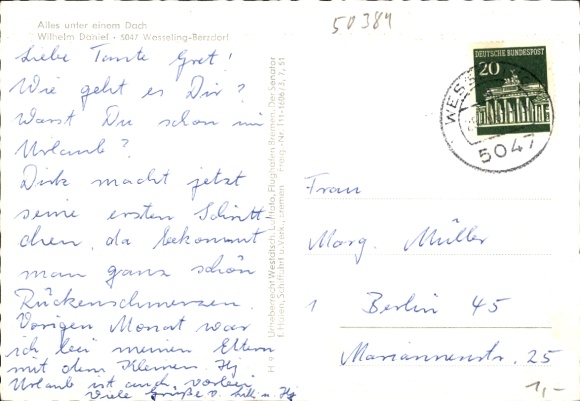 50384
Alles unter einem Dach
Wilhelm Daniel · 5047 Wesseling-Berzdorf
Liebe Tante Gret!
Wie geht es Dir?
Warst Du schon im
Urlaub?
Dirk macht jetzt
seine ersten Schritt
chen, da bekommt
man ganz schön
Rückenschmerzen.
Vorigen Monat war
ich bei meinen Eltern
mit dem Kleinen. Hj
Urlaub ist auch vorbei
Viele Grüße v. Lilli u. Hj
Urheberrecht Westdtsch. Luftfoto, Flughafen Bremen, Der Senator
f. Häfen, Schiffahrt u. Verk., Bremen Freig.-Nr.
DEUTSCHE BUNDESPOST
20
WESS
5047
Frau
Marg. Müller
1 Berlin 45
Mariannenstr. 25
1,-